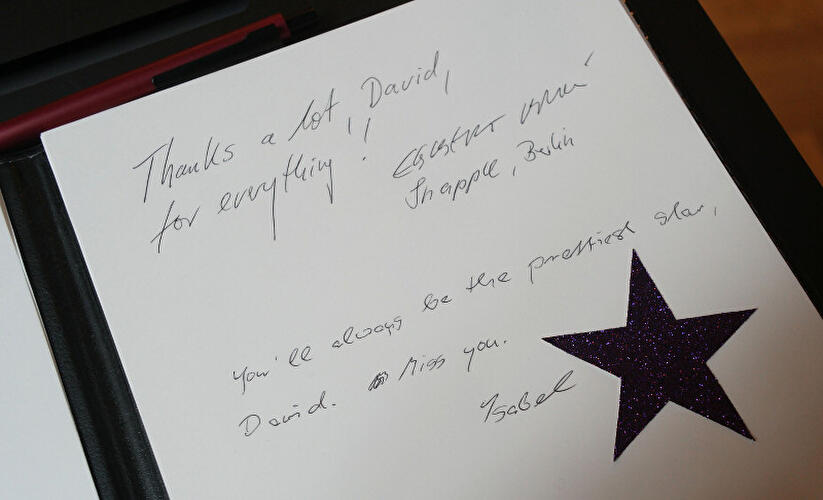 Thanks a lot, David,
for everything!!!
Snapple, Berlin
You'll always be the prettiest star,
David. Miss you.
Ysabel